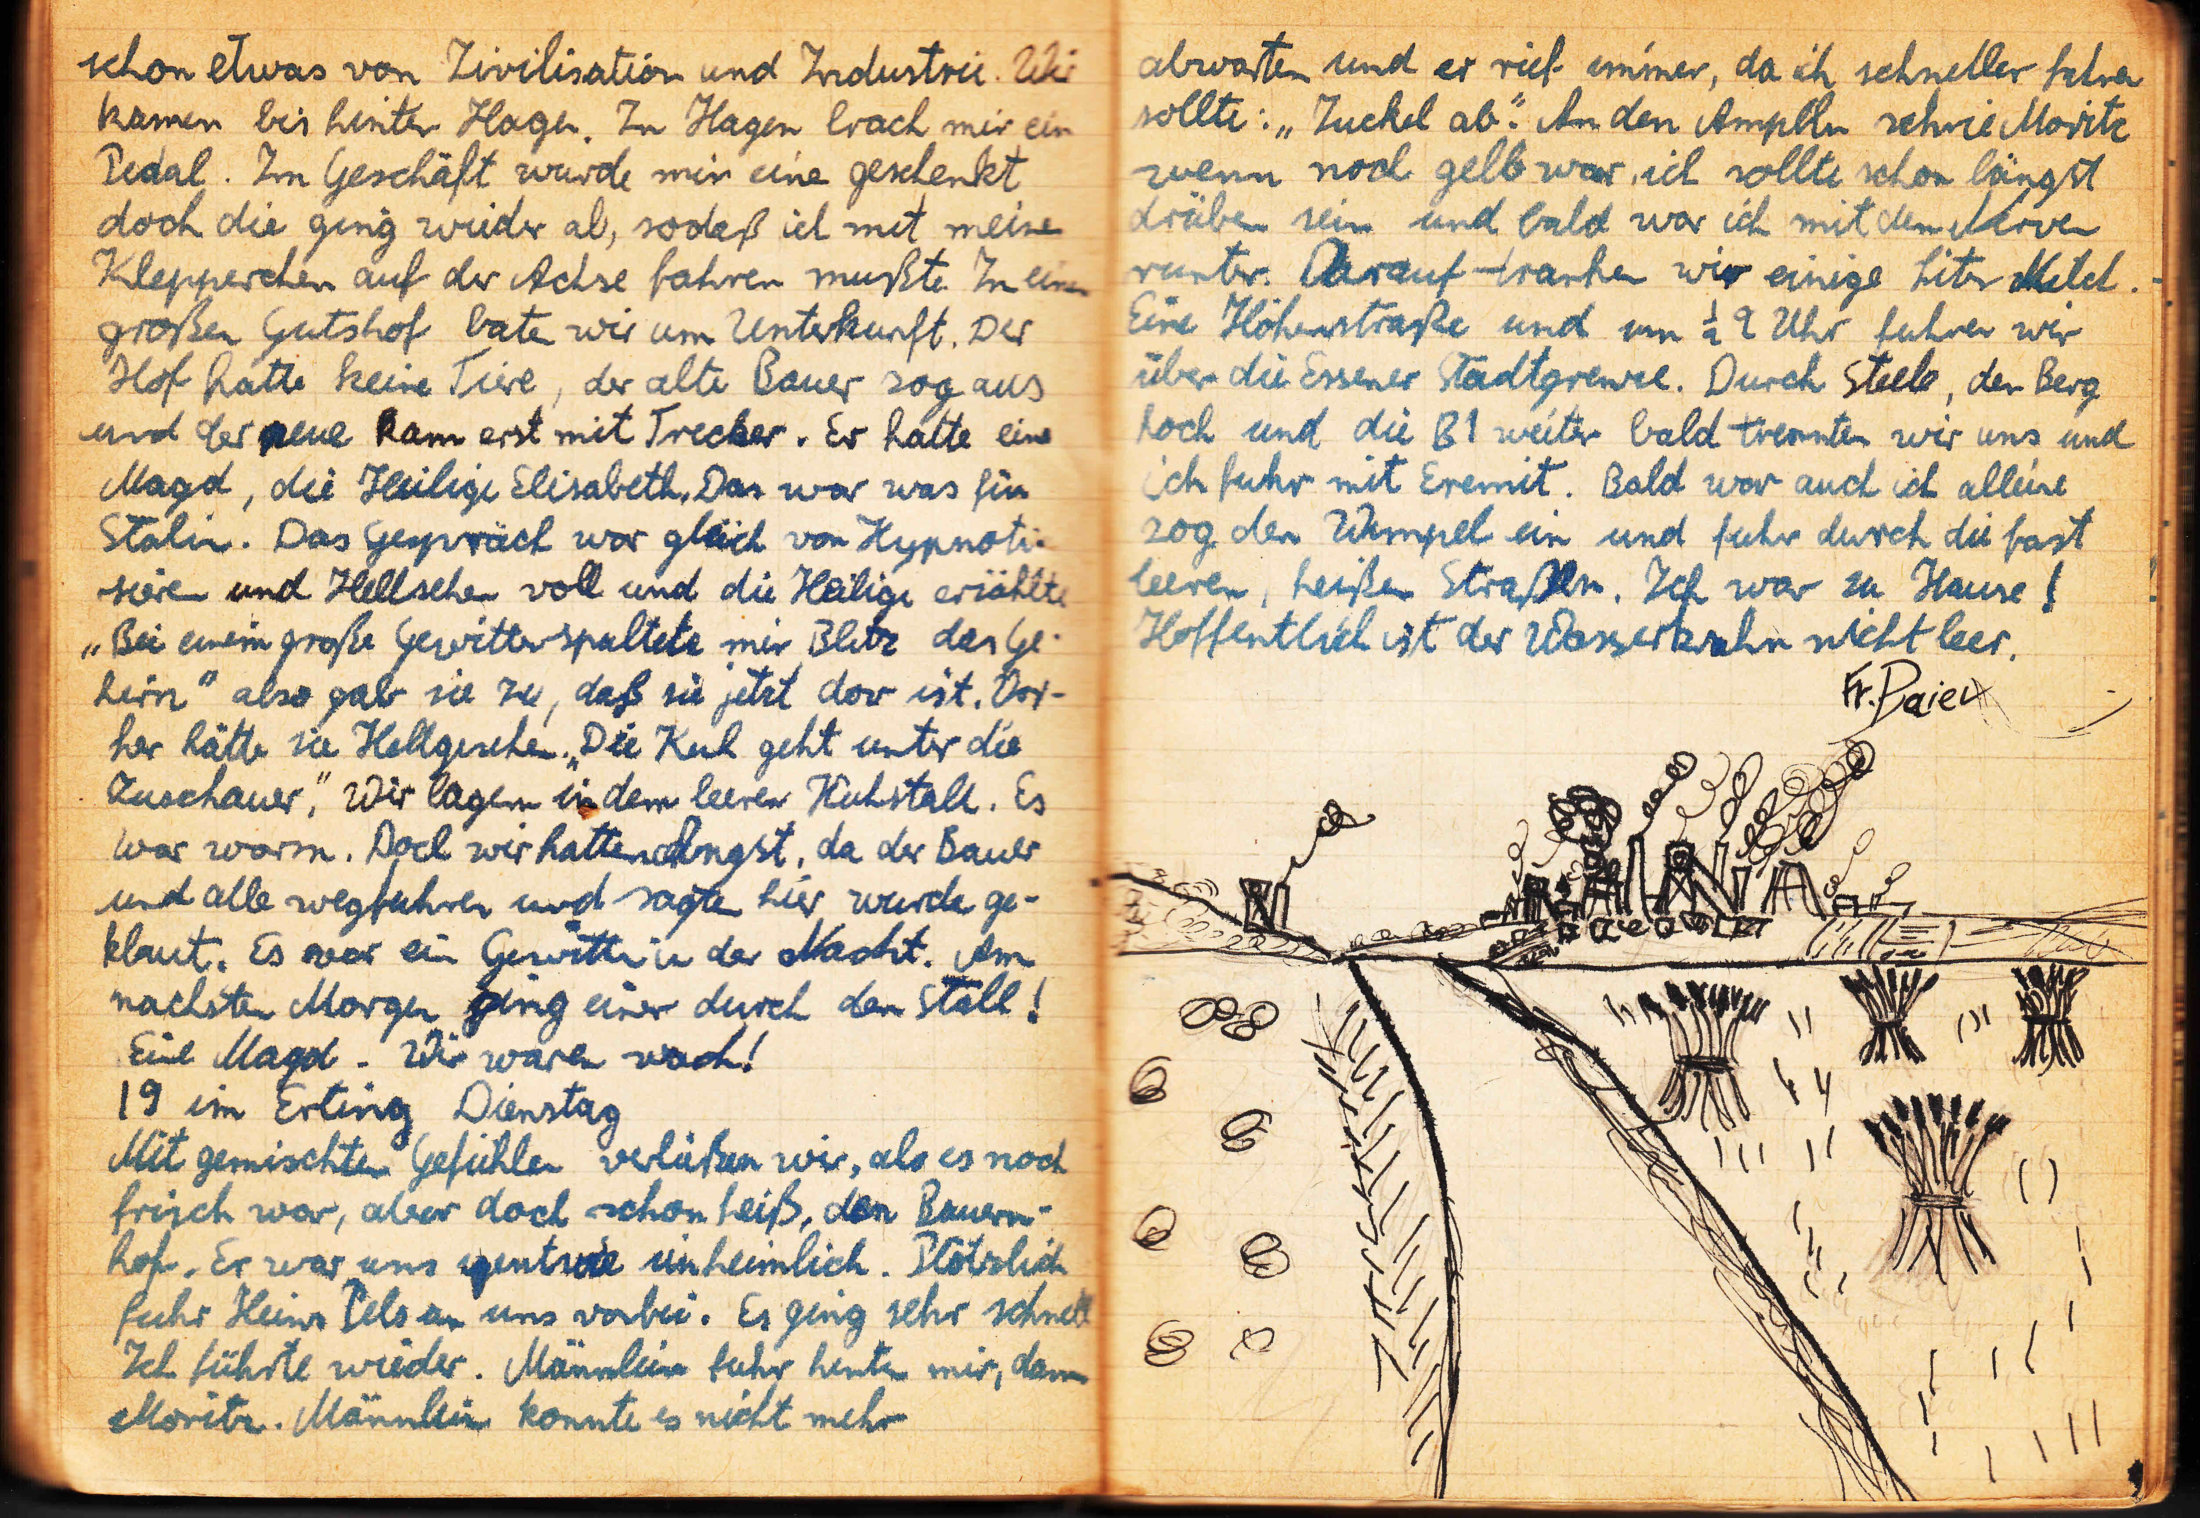 schon etwas von Zivilisation und Industrie. Wir
kamen bis hinter Hagen. In Hagen brach mir ein
Pedal. Im Geschäft wurde mir eine geschenkt
doch die ging wieder ab, sodaß ich mit meinem
Klepperchen auf der Achse fahren mußte. In einem
großen Gutshof baten wir um Unterkunft. Der
Hof hatte keine Tiere, der alte Bauer zog aus
und der neue kam erst mit Trecker. Er hatte eine
Magd, die Heilige Elisabeth. Das war was für
Stalin. Das Gespräch war gleich von Hypnoti-
sieren und Hellsehen voll und die Heilige erzählte
„Bei einem große Gewitter spaltete mir Blitz das Ge-
hirn" also gab sie zu, daß sie jetzt dov ist. Vor-
her hätte sie Hellgesehen. „Die Kuh geht unter die
Zuschauer," Wir lagen in dem leeren Kuhstall. Es
war warm. Doch wir hatten Angst, da der Bauer
und alle wegfuhren und sagten hier wurde ge-
klaut. Es war ein Gewitter in der Nacht. Am
nächsten Morgen ging einer durch den Stall!
Eine Magd - Wir waren wach!
19 im Erting Dienstag
Mit gemischten Gefühlen verließen wir, als es noch
frisch war, aber doch schon heiß, den Bauern-
hof. Er war uns unheimlich. Plötzlich
fuhr Heinz Pels an uns vorbei. Es ging sehr schnell
Ich führte wieder. Männlein fuhr hinter mir, dann
Moritz. Männlein konnte es nicht mehr
abwarten und er rief immer, da ich schneller fahren
sollte: „Zuckel ab". An den Ampeln schrie Moritz
wenn noch gelb war, ich sollte schon längst
drüben sein und bald war ich mit den Nerven
runter. Darauf tranken wir einige Liter Milch.
Eine Höhenstraße und um ½ 9 Uhr fuhren wir
über die Essener Stadtgrenze. Durch Steele, den Berg
hoch und die B1 weiter bald trennten wir uns und
ich fuhr mit Eremit. Bald war auch ich alleine
zog den Wimpel ein und fuhr durch die fast
leeren, heißen Straßen. Ich war zu Hause!
Hoffentlich ist der Wasserkrahn nicht leer.
Fr. Baier